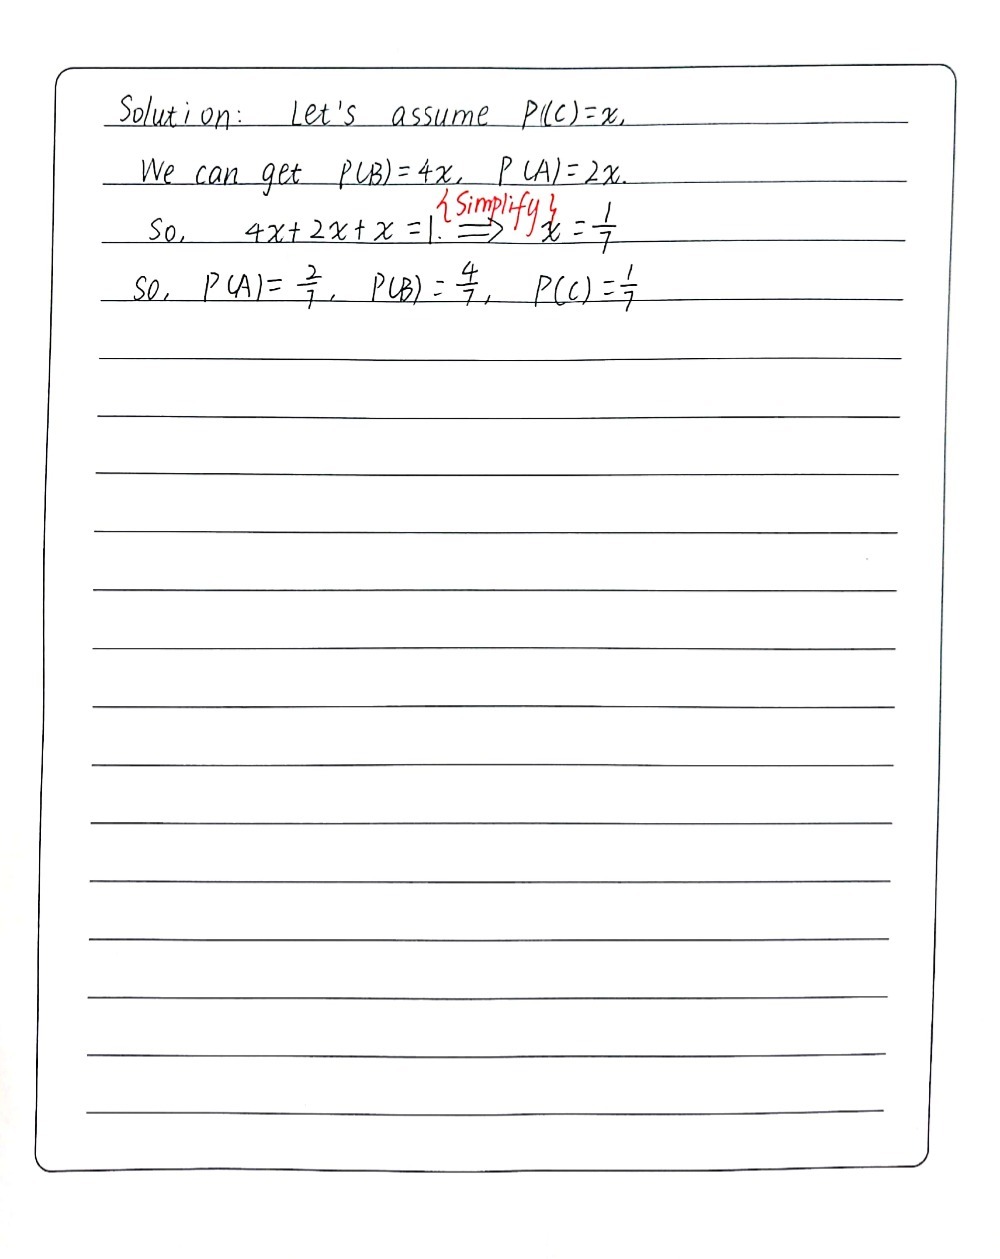 Solution: Let's assume P(C)=x,
We can get P(B)=4x, P(A)=2x.
{Simplify}
So, 4x+2x+x=1. ⇒ x=1/7
So, P(A)=2/7, P(B)=4/7, P(C)=1/7